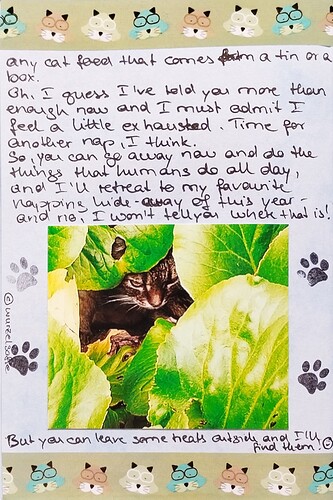 any cat food that comes from a tin or a
box.
Oh, I guess I've told you more than
enough now and I must admit I
feel a little exhausted. Time for
another nap, I think.
So, you can go away now and do the
things that humans do all day,
and I'll retreat to my favourite
napping hide-away of this year -
and no, I won't tell you where that is!
©wurzelsoffe
But you can leave some treats outside and I'll
find them!